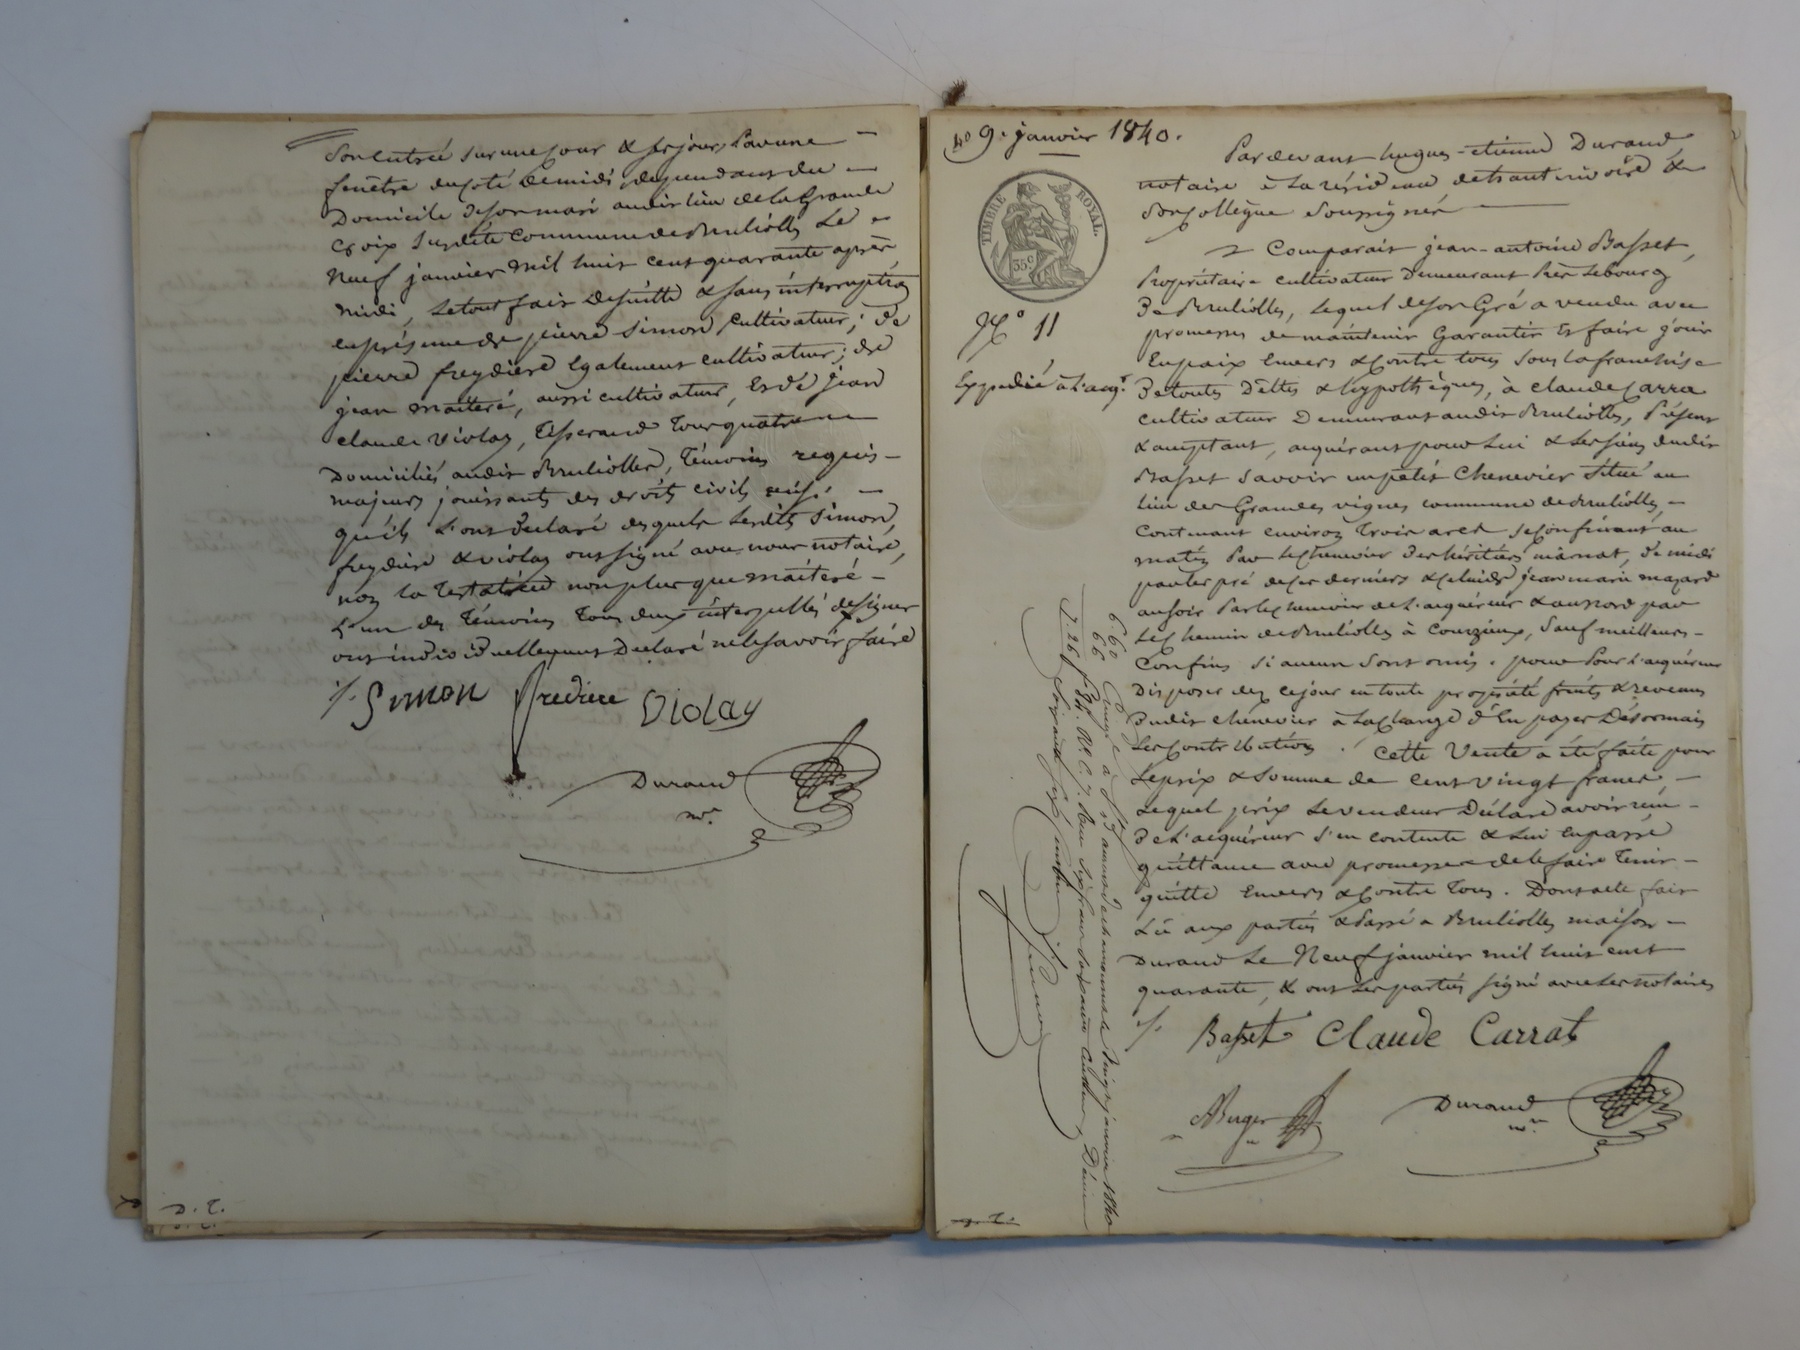 son entrée sur une cour & ses jours par une
fenêtre du côté de midi, dépendant du
Domicile de son mari au dit lieu de la Grande
Croix susdite commune de Brulioles le
neuf janvier mil huit cent quarante après
midi, le tout fait de suite & sans interruption
en présence de pierre Simon cultivateur; de
pierre freydiere également cultivateur; de
jean maiteré, aussi cultivateur, Et de jean
claude violay, tisserand tous quatre
Domiciliés audit Brulioles, témoins requis
majeurs jouissants des droits civils ainsi
qu'ils l'ont déclaré desquels lesdits Simon,
freydiere & violay ont signé avec nous notaire,
non la testatrice non plus que maiteré
l'un des témoins tous deux interpellés de signer
ont individuellement déclaré ne le savoir faire
Simon frediere Violay
Durand
nre.
D. T.
9. janvier 1840.
TIMBRE ROYAL.
35 c
N° 11
Expédié à l'acqr.
Pardevant hugues-etienne Durand
notaire à la résidence de haut rivoire &
son collègue soussignés
Comparait jean-antoine Basset,
Propriétaire cultivateur demeurant Près le bourg
de Brulioles, lequel de son Gré a vendu avec
promesses de maintenir Garantir Et faire jouir
En paix Envers & Contre tous sous la franchise
de toutes dettes & hypothèques, à claude Carra
cultivateur Demeurant audit Brulioles, Présent
& acceptant, acquérant pour lui & les siens dudit
Basset savoir un petit Chenevier situé au
lieu des Grandes vignes commune de Brulioles,
Contenant environ trois ares se confinant au
matin Par le chenevier des héritiers marnat, de midi
par le pré de ces derniers & celui de jean marie mazard
au soir Par le chenevier de l'acquéreur & au nord par
le chemin de Brulioles à Courzieux, sauf meilleurs
Confins si aucun sont omis. pour Par l'acquéreur
disposer dez ce jour en toute propriété fruits & revenus
dudit chénevier à la charge d'En payer Désormais
les contributions. Cette Vente a été faite pour
le prix & Somme de cent vingt francs
lequel prix le vendeur Déclare avoir reçu
de l'acquéreur s'en contente & lui En passe
quittance avec promesse de le faire tenir
quitte Envers & Contre tous. Dont acte fait
Lu aux parties & Passé a Brulioles maison
Durand le Neuf janvier mil huit cent
quarante, & ont les parties signé avec les notaires
Basset Claude Carrat
Durand
nre
6 60
66
7. 26
janvier 1840